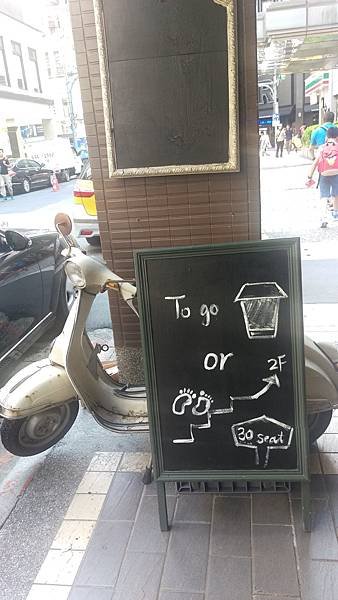 To go
or
2F
30 seat